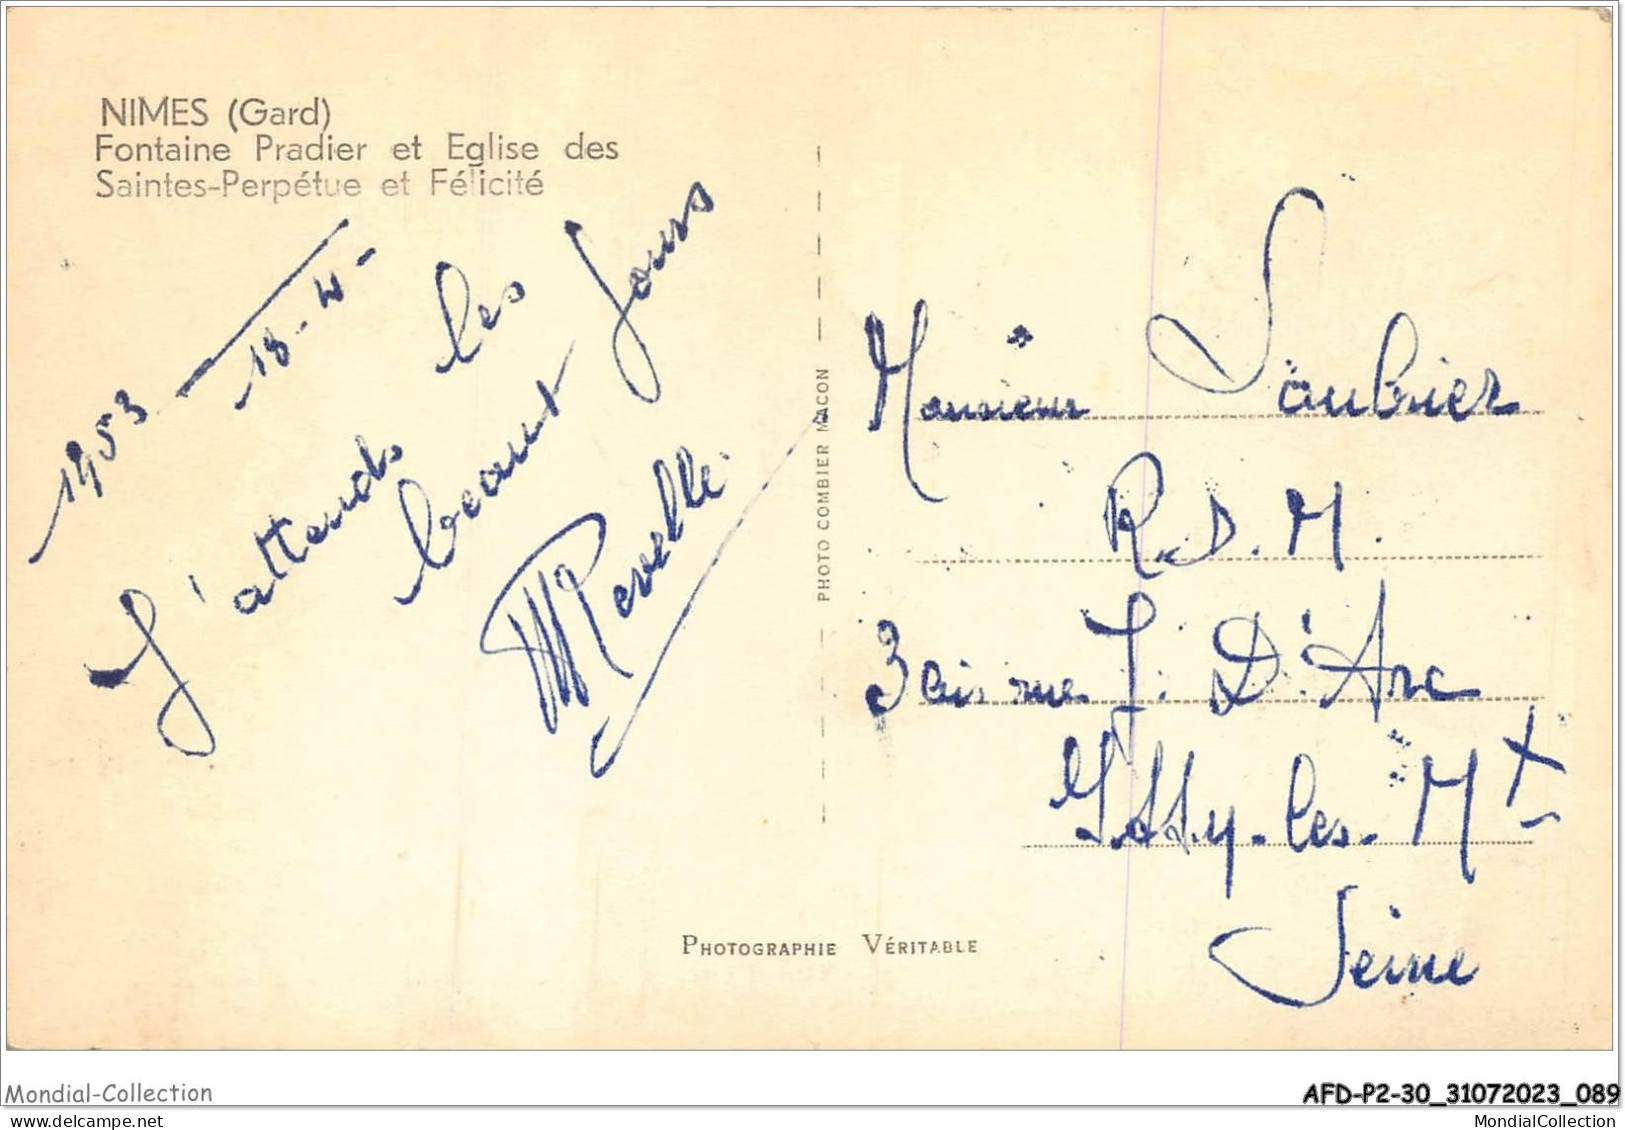 NIMES (Gard)
Fontaine Pradier et Eglise des
Saintes-Perpétue et Félicité
1953
18-4-
J'attends les
beaux jours
Revelli
PHOTO COMBIER MACON
Monsieur Saubier
R.D.M.
3 rue J. D'Arc
Issy-les-Mx
Seine
PHOTOGRAPHIE VÉRITABLE
Mondial-Collection
AFD-P2-30_31072023_089
MondialCollection